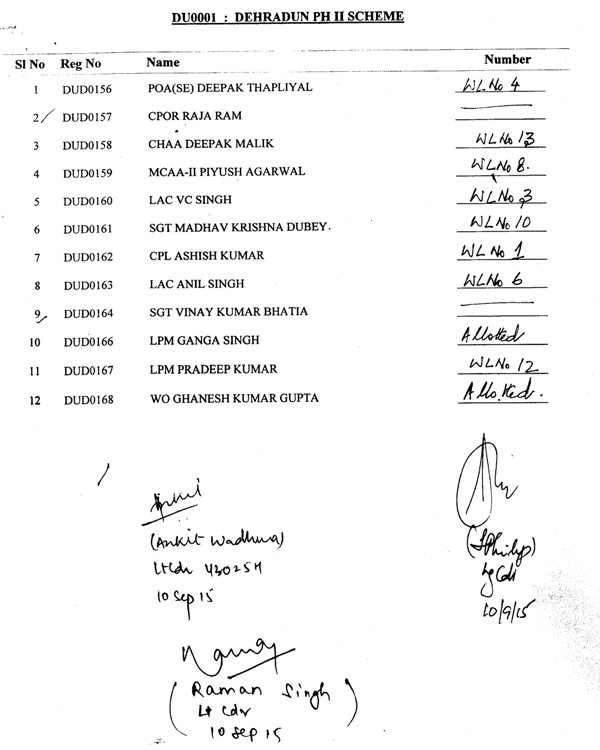 DU0001 : DEHRADUN PH II SCHEME
Sl No Reg No Name Number
1 DUD0156 POA(SE) DEEPAK THAPLIYAL WL No 4
2 DUD0157 CPOR RAJA RAM
3 DUD0158 CHAA DEEPAK MALIK WL No 13
4 DUD0159 MCAA-II PIYUSH AGARWAL WL No 8.
5 DUD0160 LAC VC SINGH WL No 3
6 DUD0161 SGT MADHAV KRISHNA DUBEY. WL No 10
7 DUD0162 CPL ASHISH KUMAR WL No 1
8 DUD0163 LAC ANIL SINGH WL No 6
9 DUD0164 SGT VINAY KUMAR BHATIA
10 DUD0166 LPM GANGA SINGH Allotted
11 DUD0167 LPM PRADEEP KUMAR WL No 12
12 DUD0168 WO GHANESH KUMAR GUPTA Allotted.
(Ankit Wadhwa)
Lt Cdr 43025H
10 Sep 15
10/9/15
(Raman Singh)
Lt Cdr
10 Sep 15